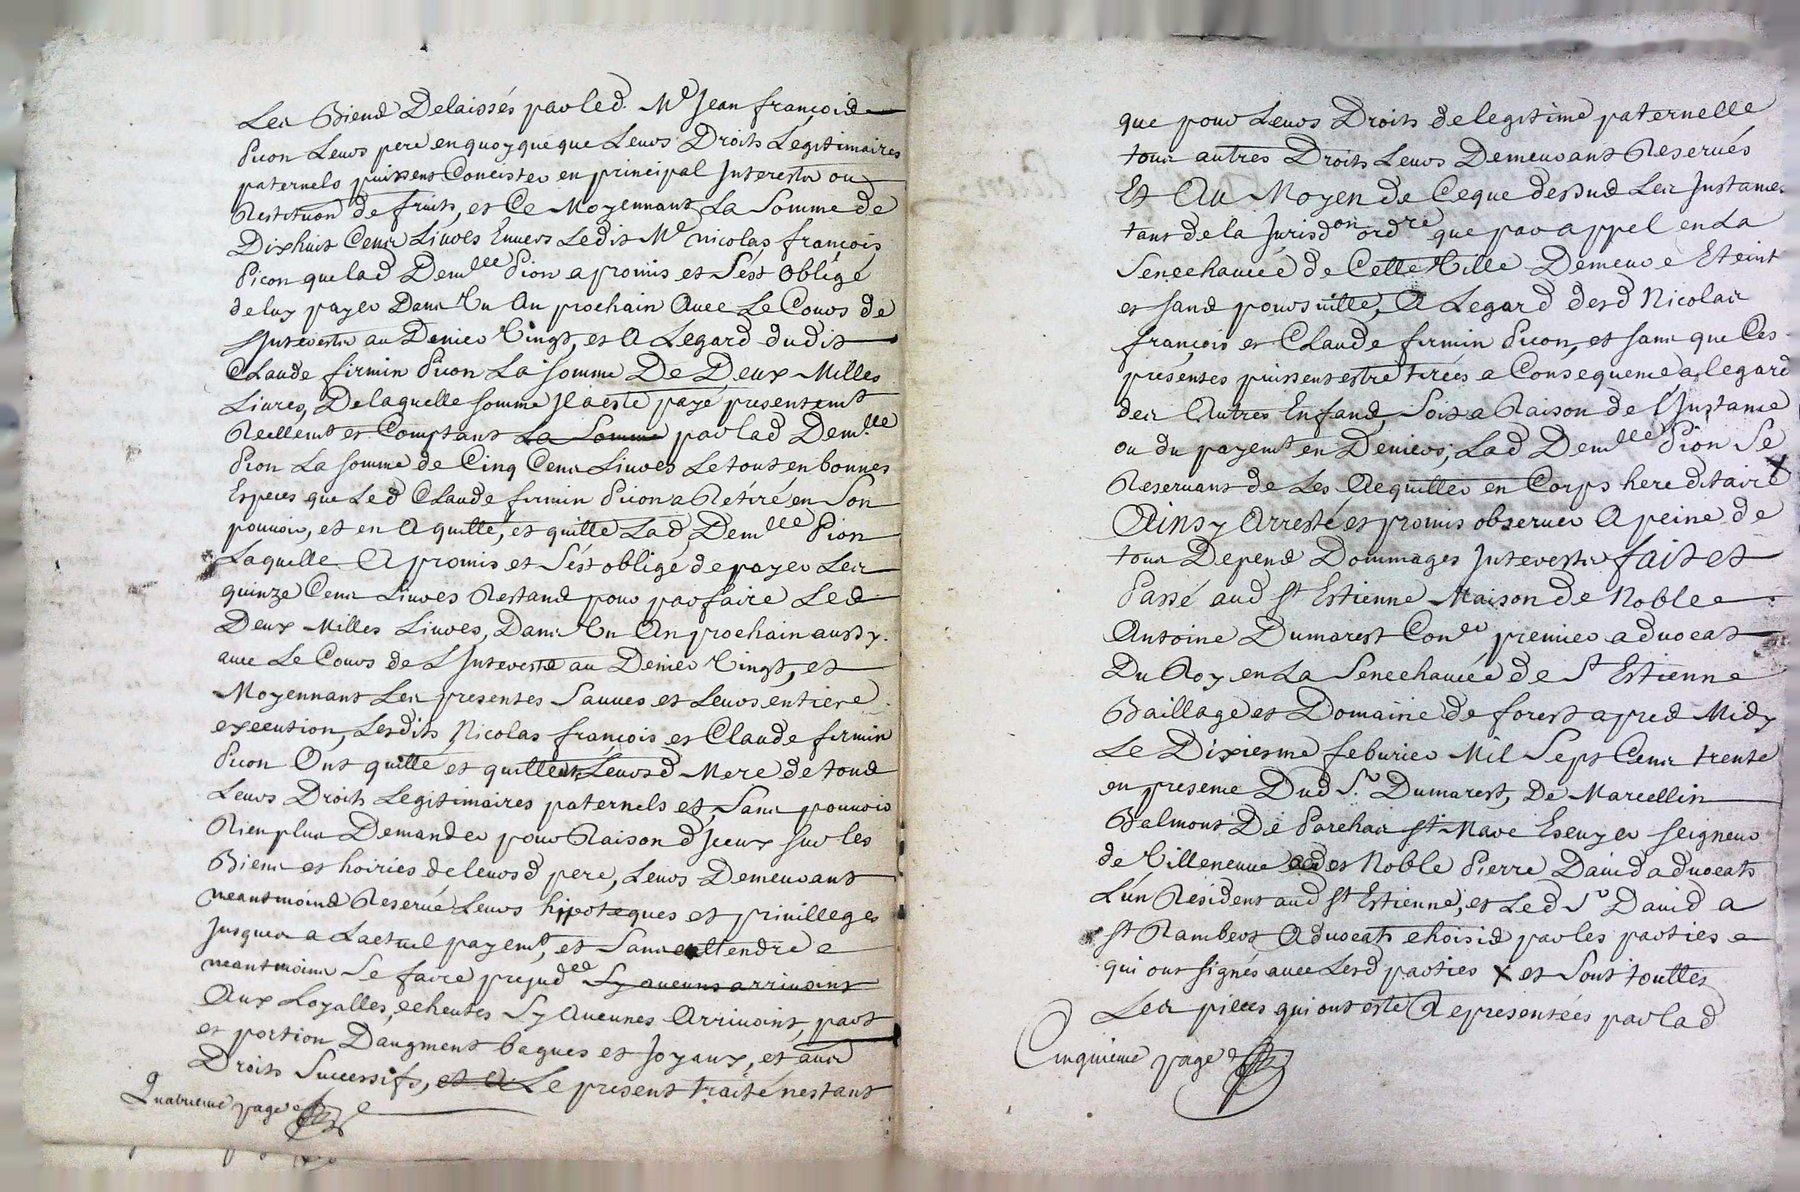 Les Biens Delaissés par led. Me Jean françois
Picon Leurs pere en quoy que que Leurs Droits Legitimaires
paternels puissent Concister en principal Interests ou
Restituon de fruits, et Ce Moyennant La Somme de
Dixhuit Cens Livres Envers Ledit Me nicolas françois
Picon que lad Demlle Pion a promis et S'est obligé
de luy payer Dans Un An prochain Avec Le Cours de
Interests au Denier Vingt, et A Legard dudit
Claude firmin Picon La somme De Deux Milles
Livres, De laquelle somme Il a esté payé presentemt
Reellemt et Comptant La Somme par lad Demlle
Pion La somme de Cinq Cens Livres Le tout en bonnes
Especes que Led Claude firmin Picon a Retiré en Son
pouvoir, et en A quitté, et quitte Lad Demlle Pion
Laquelle A promis et S'est obligé de payer Les
quinze Cens Livres Restand pour parfaire Led
Deux Milles Livres, Dans Un An prochain aussy.
avec Le Cours de L Interests au Denier Vingt, et
Moyennant Les presentes Sauves et Leurs entiere
execution, Lesdits Nicolas françois et Claude firmin
Picon Ont quitté et quittent Leursd Mere de tous
Leurs Droits Legitimaires paternels et, Sans pouvoir
Rien plus Demander pour Raison d'Iceux sur les
Biens et hoiries de leursd pere, Leurs Demeurant
neantmoins Reservé Leurs hipoteques et privilleges
Jusques a Lactuel payemt, et Sans entendre
neantmoins Se faire prejudce Sy aucuns arrivoint
Aux Loyalles, echeutes Sy Aucunes Arrivoint, part
et portion D'augment bagues et Joyaux, et aues
Droits Successifs, et A Le present traité nestant
Quatrieme page
que pour Leurs Droits de legitime paternelle
tous autres Droits Leurs Demeurant Reservés
Et Au Moyen de Ceque dessus Les Instances
tant de la Jurisdon ordre que par appel en La
Senechaucée de Cette Ville Demeure Eteint
et sans poursuitte, A Legard desd Nicolas
françois et Claude firmin Picon, et sans que Ces
presentes puissent estre tirées a Consequence a legard
des Autres Enfans, Soit a Raison de l'Instance
ou du payemt en Deniers, Lad Demlle Pion Se
Reservant de Les Acquitter en Corps hereditaire X
Ainsy Arresté et promis observer A peine de
tous Depend Dommages Interests fait et
Passé aud St Estienne Maison de Noble
Antoine Dumarest Coner premier advocat
Du Roy en La Senechaucée de St Estienne
Baillage et Domaine de forest apred Midy
Le Dixiesme feburier Mil Sept Cens trente
en presence Dud Sr Dumarest, De Marcellin
Balmont De Parchas St Mare Escuyer seigneur
de Villeneuve et Noble Pierre David advocats
L'un Resident aud St Estienne, et Led Sr David a
St Rambert Advocats choisis par les parties
qui ont signés avec Lesd parties X et Sont touttes
Les pieces qui ont esté Representées par lad
Cinquieme page